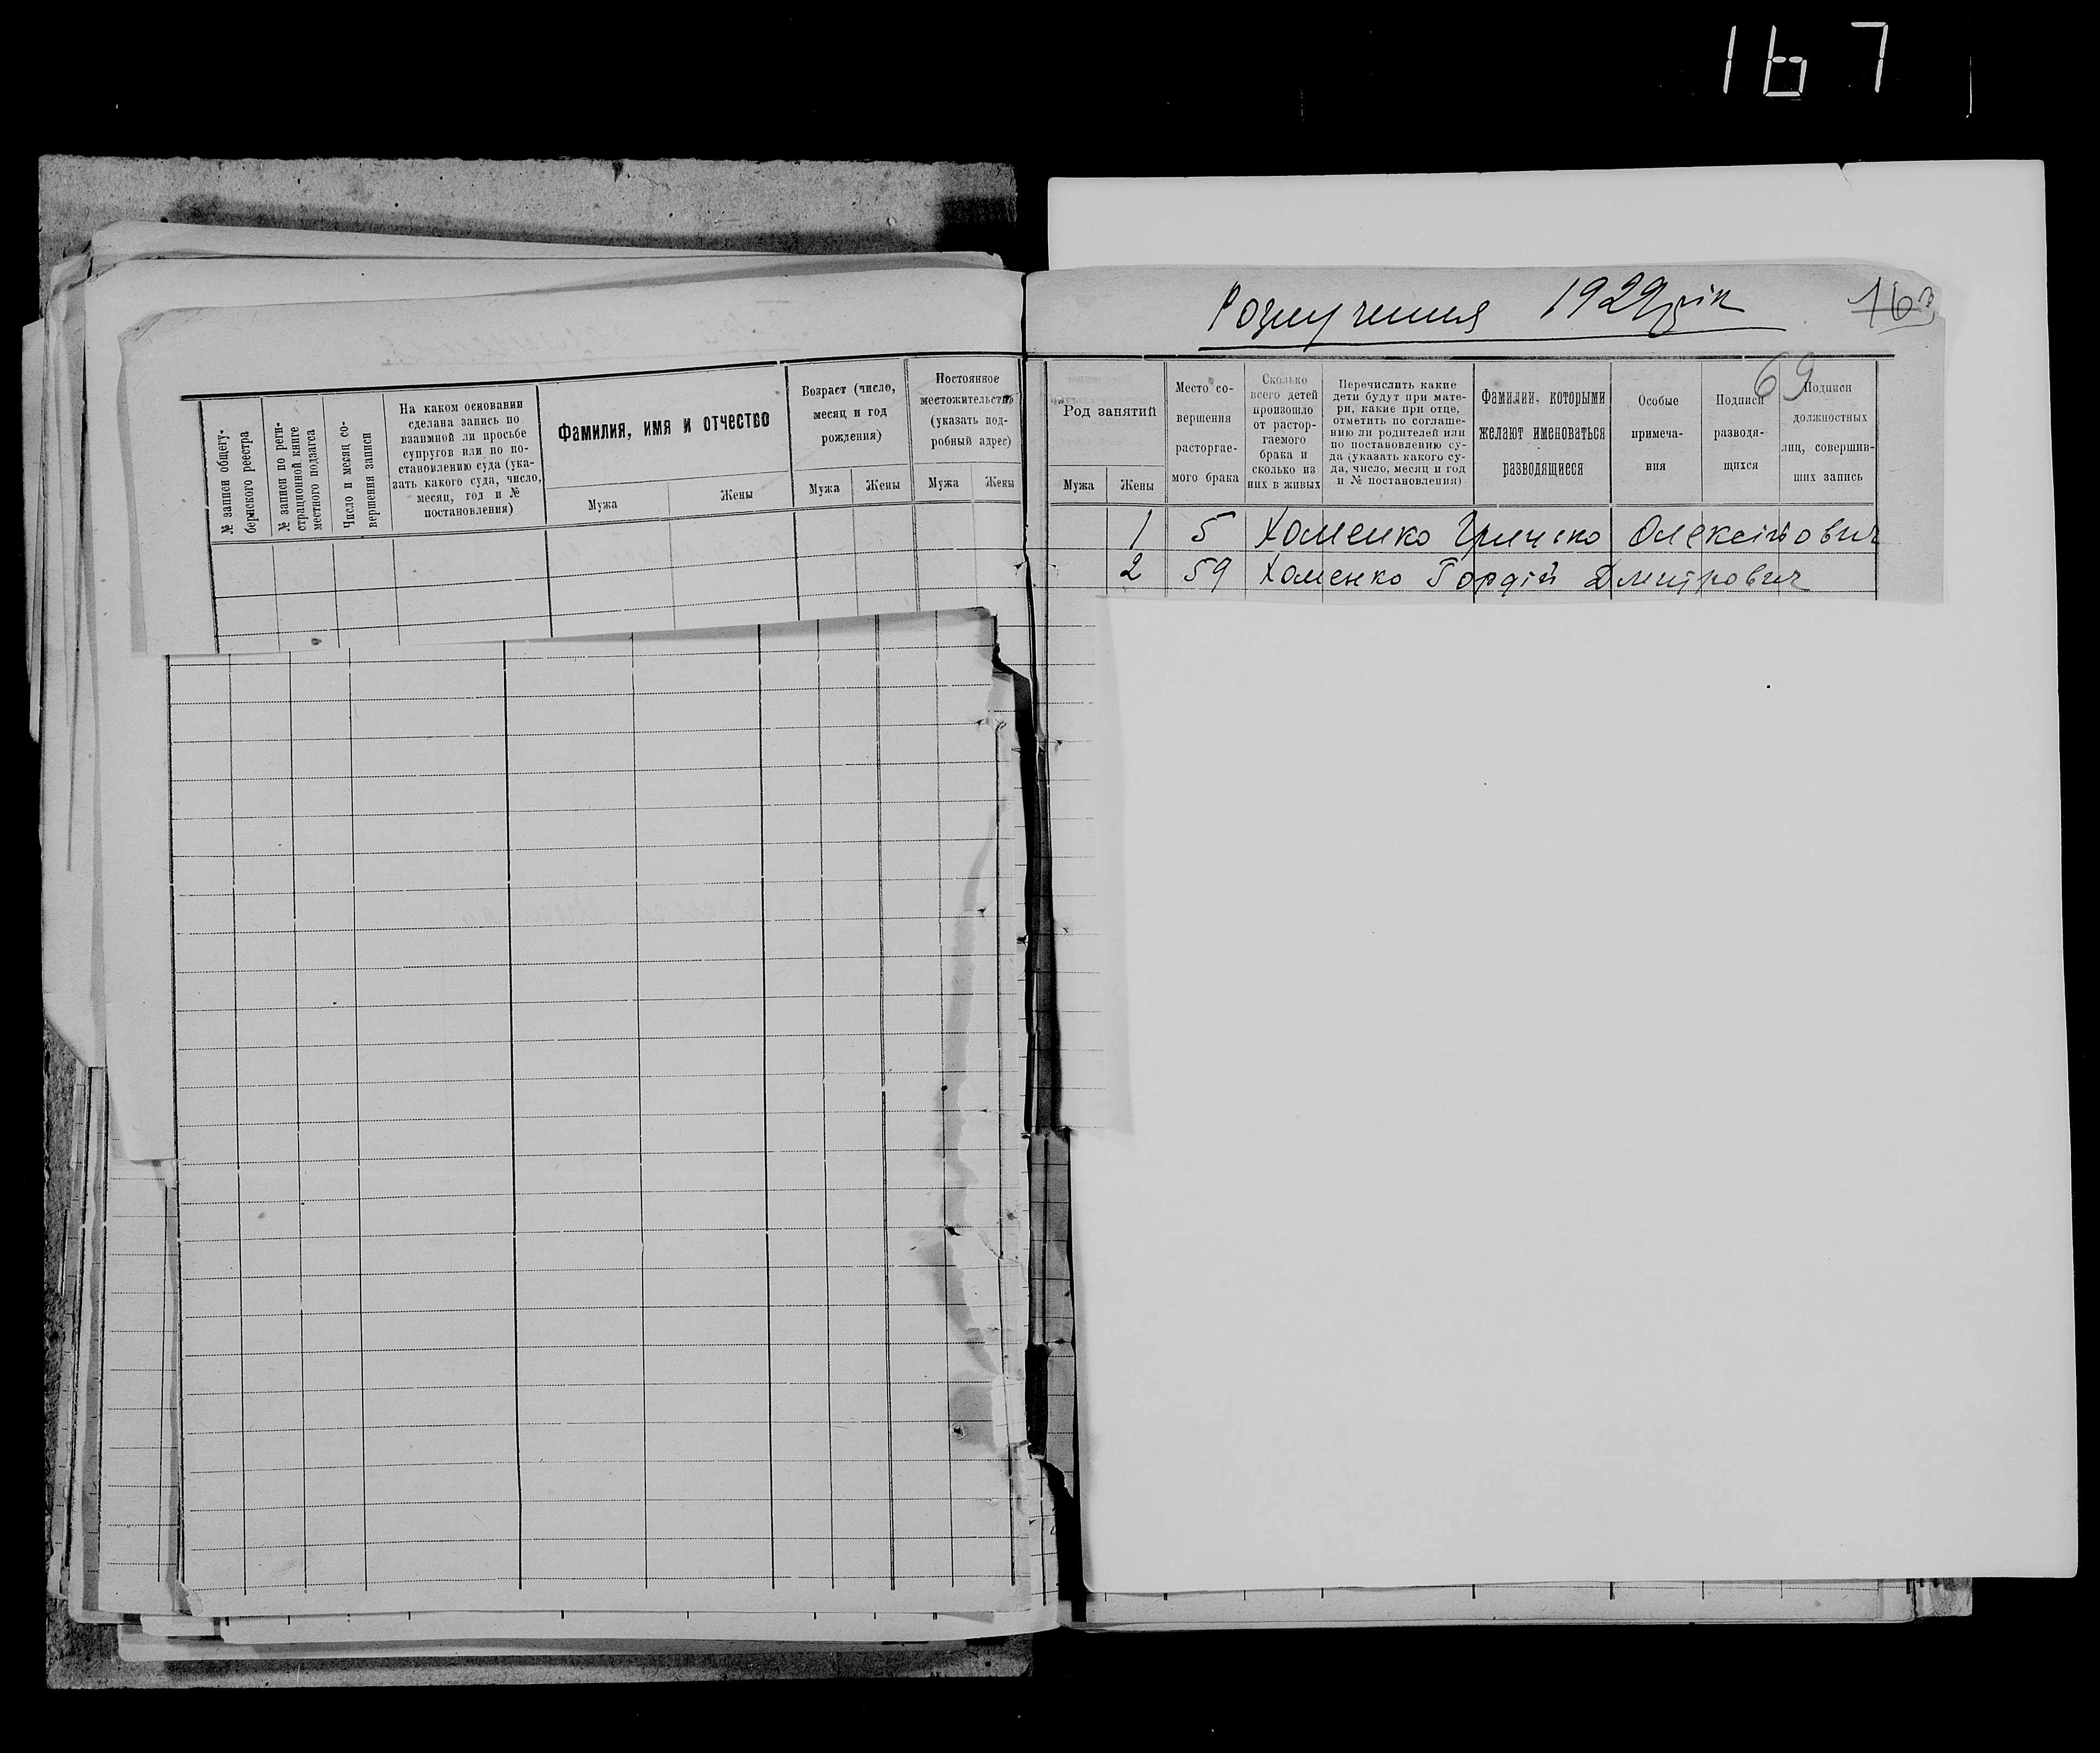 167
Розлучення 1929 рік
163
69
№ записи общегу-
бернского реестра
№ записи по реги-
страционной книге
местного подзагса
Число и месяц со-
вершения записи
На каком основании
сделана запись по
взаимной ли просьбе
супругов или по по-
становлению суда (ука-
зать какого суда, число,
месяц, год и №
постановления)
Фамилия, имя и отчество
Мужа
Жены
Возраст (число,
месяц и год
рождения)
Мужа
Жены
Постоянное
местожительство
(указать под-
робный адрес)
Мужа
Жены
Род занятий
Мужа
Жены
Место со-
вершения
расторгае-
мого брака
Сколько
всего детей
произошло
от растор-
гаемого
брака и
сколько из
них в живых
Перечислить какие
дети будут при мате-
ри, какие при отце,
отметить по соглаше-
нию ли родителей или
по постановлению су-
да (указать какого су-
да, число, месяц и год
и № постановления)
Фамилии, которыми
желают именоваться
разводящиеся
Особые
примеча-
ния
Подписи
разводя-
щихся
Подписи
должностных
лиц, совершив-
ших запись
1 5 Хоменко Олексійович
2 59 Хоменко Гордій Дмитрович